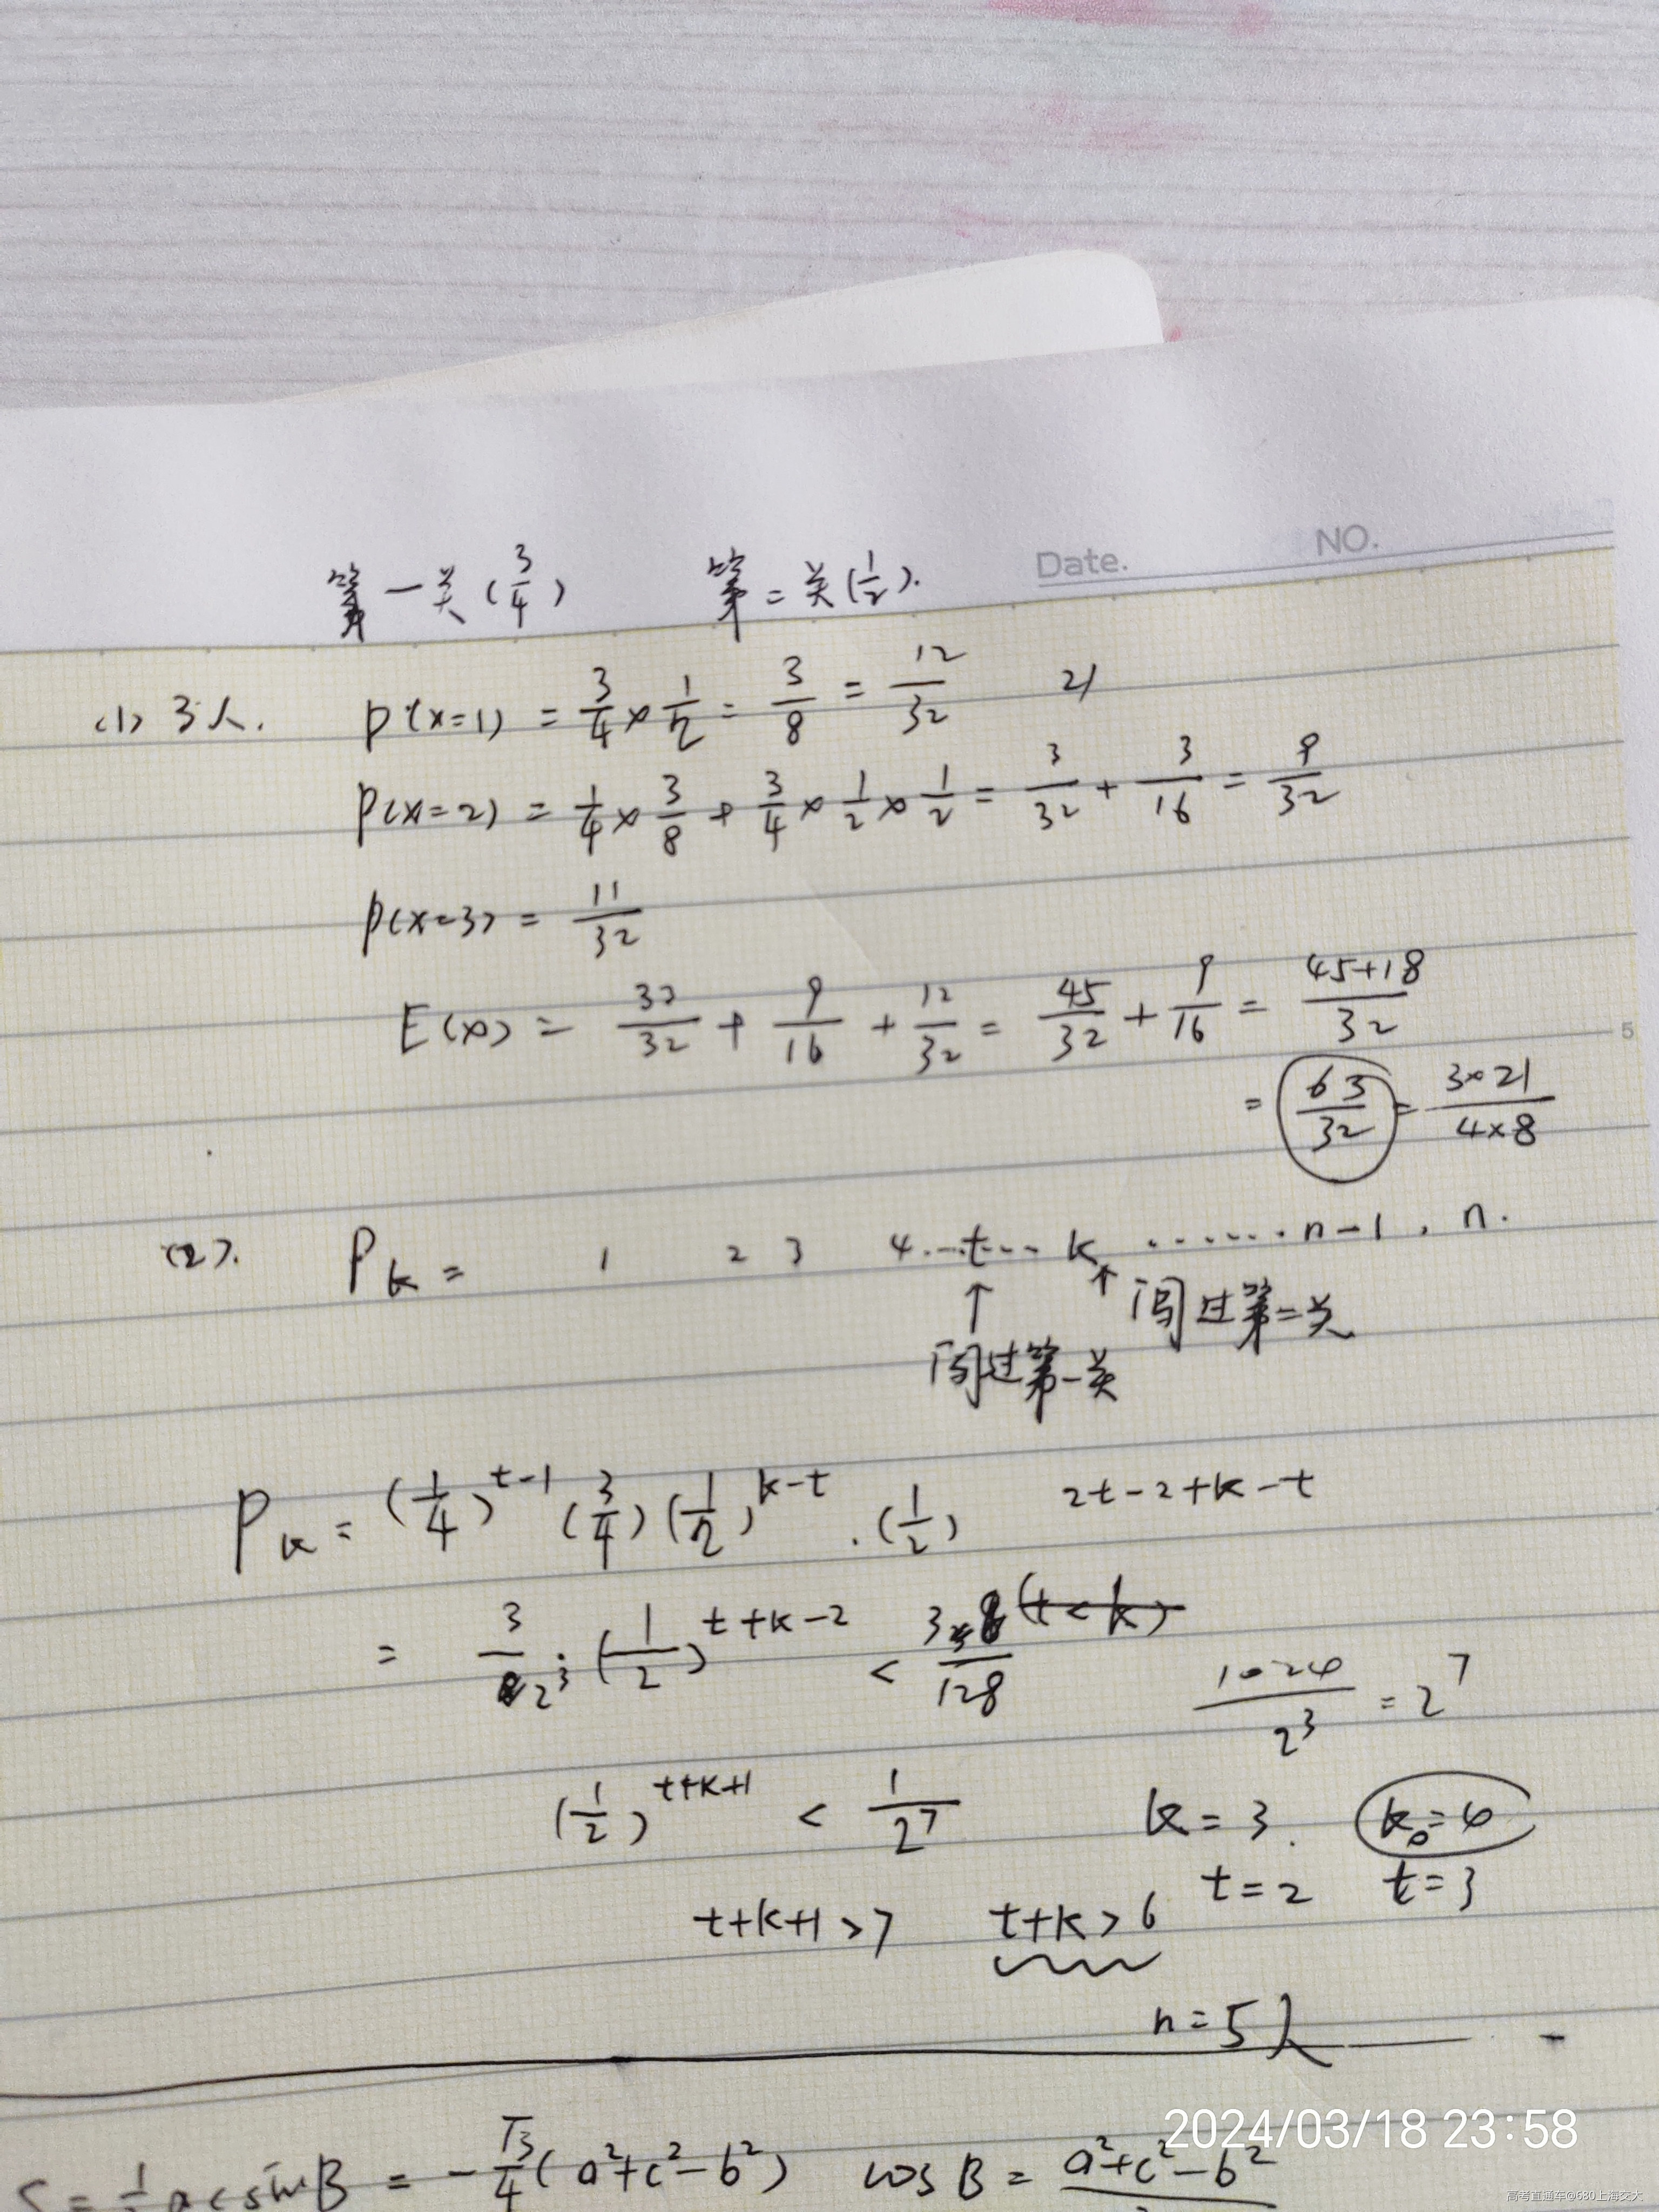 Date.
NO.
第一关(3/4) 第二关(1/2).
(1) 3人. P(x=1) = 3/4 × 1/2 = 3/8 = 12/32 21
P(x=2) = 1/4 × 3/8 + 3/4 × 1/2 × 1/2 = 3/32 + 3/16 = 9/32
P(x=3) = 11/32
E(x) = 33/32 + 9/16 + 12/32 = 45/32 + 9/16 = 45+18/32
5
= 63/32 = 3×21/4×8
(2). Pk = 1 2 3 4...t... k ....... n-1 . n.
↑ ↑ 闯过第二关
闯过第一关
Pk = (1/4)^t-1 (3/4) (1/2)^k-t . (1/2) 2t-2+k-t
= 3/2^3 · (1/2)^t+k-2 < 3/128 (t<k)
1024/2^3 = 2^7
(1/2)^t+k+1 < 1/2^7 k=3. k0=4
t=2 t=3
t+k+1>7 t+k>6
n=5人
S = 1/2 ac sinB = -√3/4(a²+c²-b²) cosB = a²+c²-b²
2024/03/18 23:58
高考直通车@680上海交大